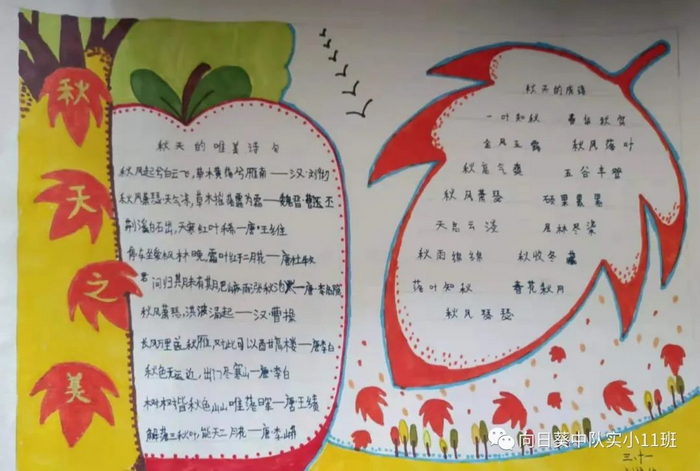 秋天之美
秋天的唯美诗句
秋风起兮白云飞,草木黄落兮雁南——汉·刘彻
秋风萧瑟天气凉,草木摇落露为霜——魏晋·曹丕
荆溪白石出,天寒红叶稀——唐·王维
停车坐爱枫林晚,霜叶红于二月花——唐·杜牧
君问归期未有期,巴山夜雨涨秋池——唐·李商隐
秋风萧瑟,洪波涌起——汉·曹操
长风万里送秋雁,对此可以酣高楼——唐·李白
秋色无远近,出门尽寒山——唐·李白
树树皆秋色,山山唯落晖——唐·王绩
解落三秋叶,能开二月花——唐·李峤
秋天的成语
一叶知秋 春华秋实
金风玉露 秋风落叶
秋高气爽 五谷丰登
秋风萧瑟 硕果累累
天高云淡 层林尽染
秋雨绵绵 秋收冬藏
落叶知秋 春花秋月
秋风瑟瑟
三.十一
向日葵中队实小11班